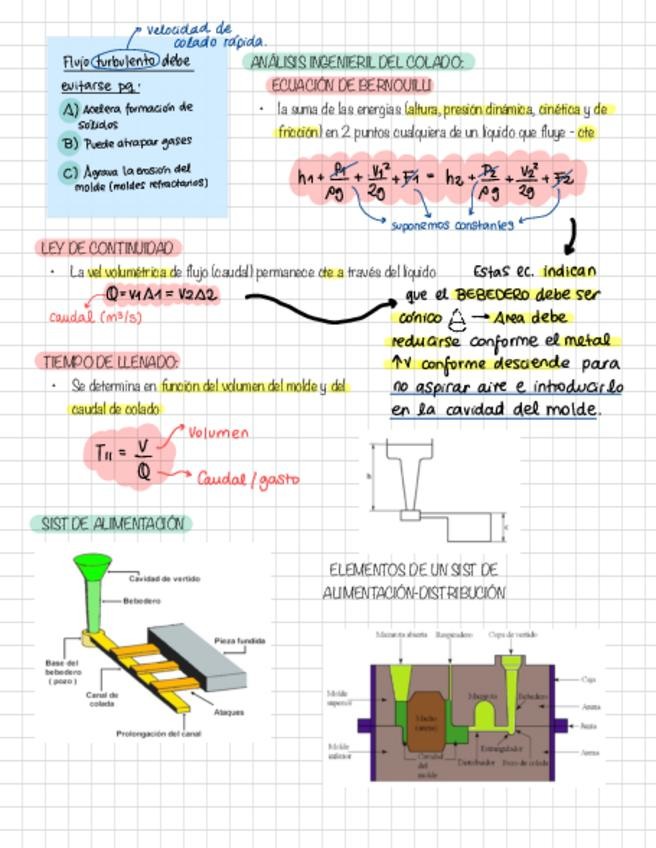 velocidad de
colado rápida.
Flujo turbulento debe
evitarse pq:
A) Acelera formación de
sólidos
B) Puede atrapar gases
C) Agrava la erosión del
molde (moldes refractarios)
ANÁLISIS INGENIERIL DEL COLADO:
ECUACIÓN DE BERNOUILLI
• la suma de las energías (altura, presión dinámica, cinética y de
fricción) en 2 puntos cualquiera de un líquido que fluye - cte
h1 + P1/ρg + V1²/2g + F1 = h2 + P2/ρg + V2²/2g + F2
suponemos constantes
LEY DE CONTINUIDAD
• La vel volumétrica de flujo (caudal) permanece cte a través del líquido
Q = V1A1 = V2A2
caudal (m³/s)
Estas ec. indican
que el BEBEDERO debe ser
cónico → Area debe
reducirse conforme el metal
↑v conforme desciende para
no aspirar aire e introducirlo
en la cavidad del molde.
TIEMPO DE LLENADO:
• Se determina en función del volumen del molde y del
caudal de colado
T11 = V/Q
Volumen
Caudal/gasto
SIST DE ALIMENTACIÓN
Cavidad de vertido
Bebedero
Pieza fundida
Base del
bebedero
(pozo)
Canal de
colada
Ataques
Prolongación del canal
ELEMENTOS DE UN SIST DE
ALIMENTACIÓN-DISTRIBUCIÓN
Mazarota abierta
Respiradero
Copa de vertido
Caja
Molde
superior
Macho
(arena)
Mazarota
Bebedero
Arena
Junta
Molde
inferior
Cavidad
del
molde
Estrangulador
Distribuidor
Pozo de colada
Arena